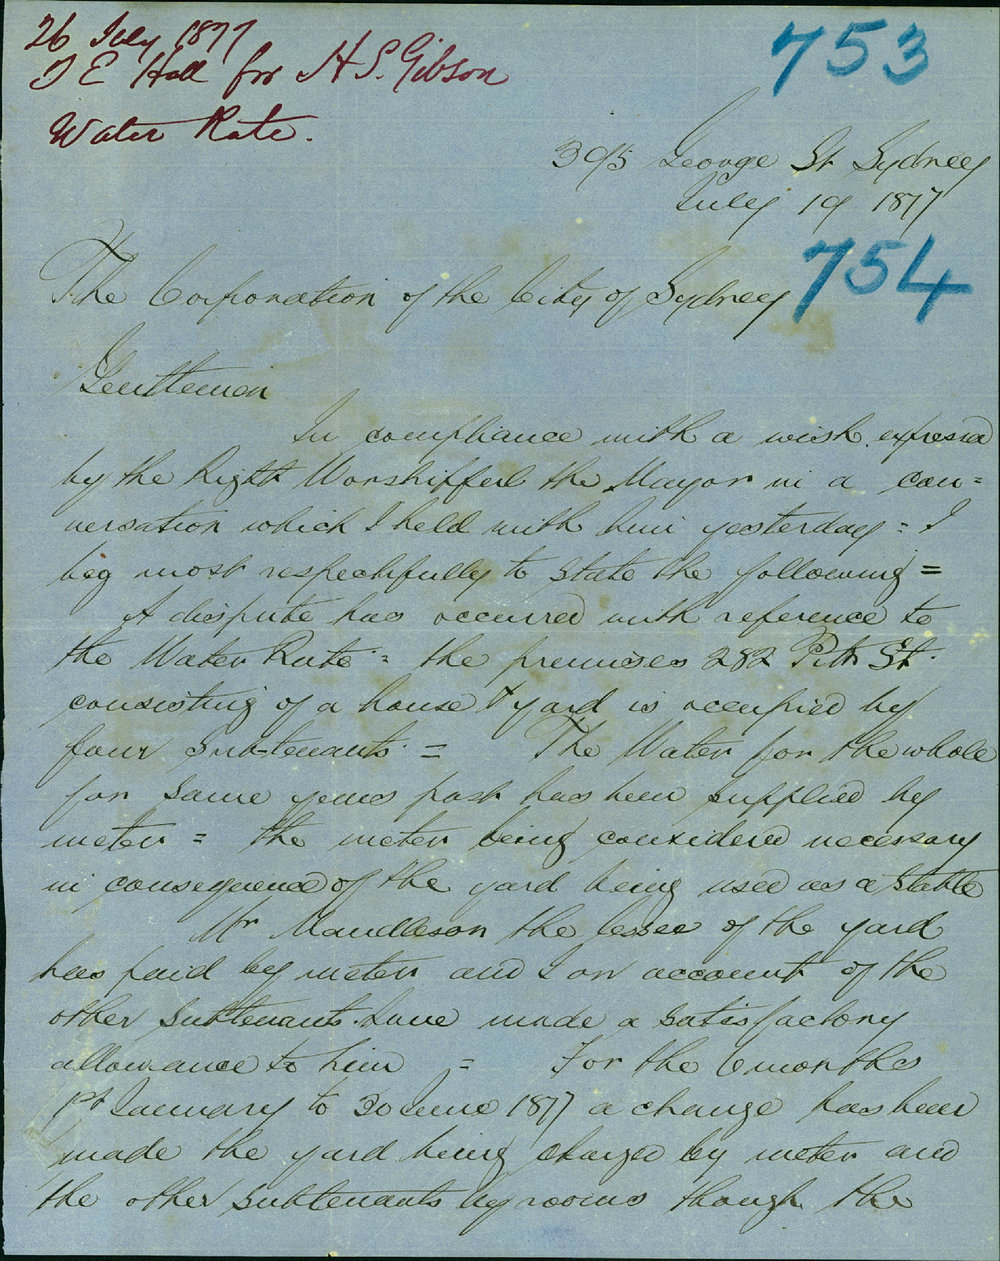 26 July 1877
T E Hall for H S. Gibson
Water Rate.
753
395 George St Sydney
July 19 1877
754
The Corporation of the City of Sydney
Gentlemen
In compliance with a wish expressed
by the Right Worshipful the Mayor in a con=
versation which I held with him yesterday = I
beg most respectfully to State the following =
A dispute has occurred with reference to
the Water Rate = the premises 282 Pitt St.
consisting of a house & yard is occupied by
four Sub-tenants = The Water for the whole
for some years past has been supplied by
meter = the meter being considered necessary
in consequence of the yard being used as a Stable
Mr Mandleson the lessee of the yard
has paid by meter and I on account of the
other Subtenants have made a satisfactory
allowance to him = For the 6 months
1st January to 30 June 1877 a change has been
made the yard being charged by meter and
the other Subtenants by rooms though the